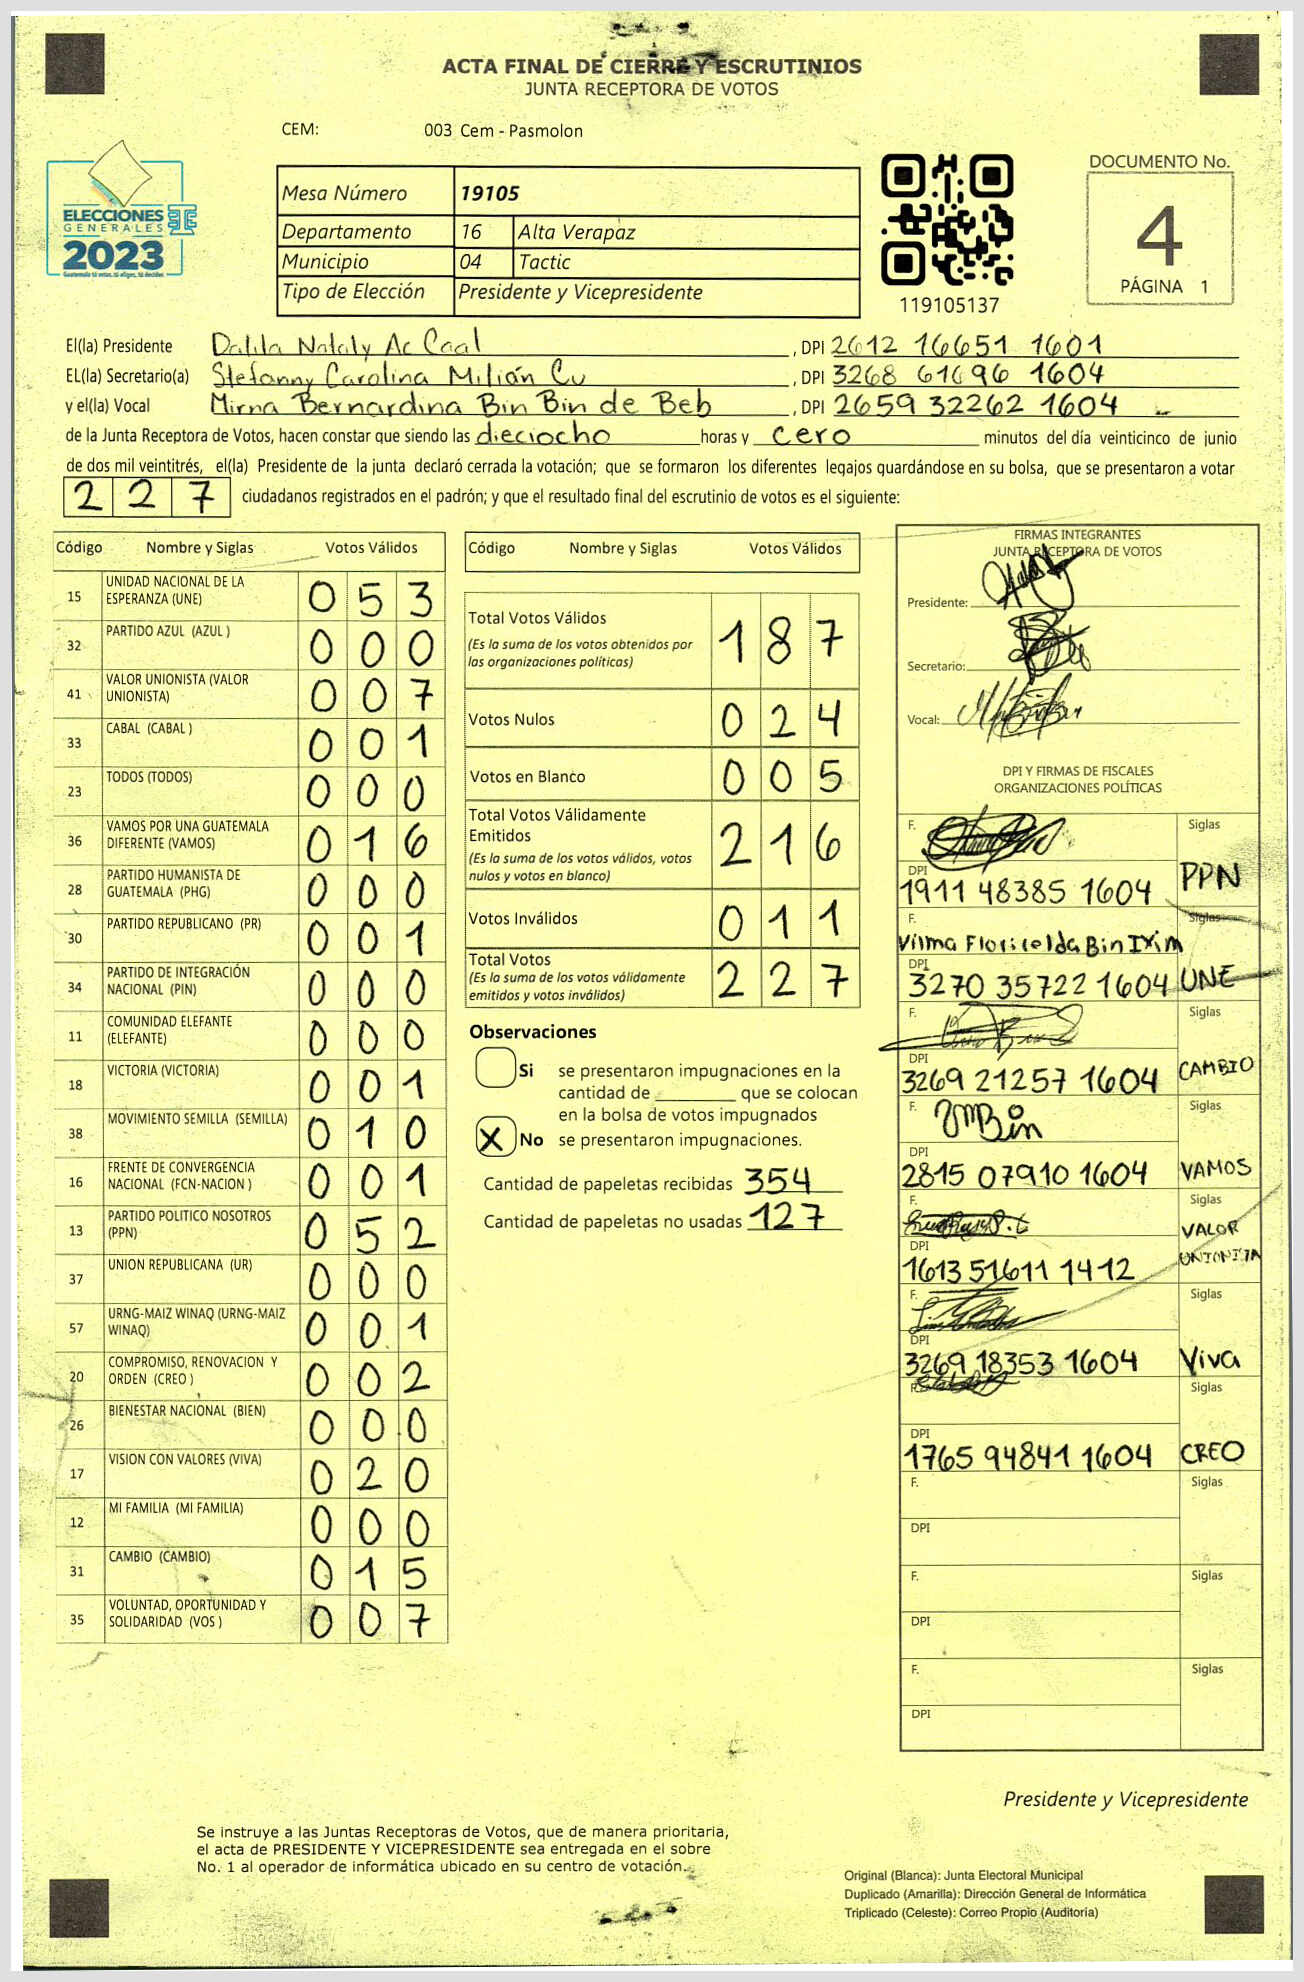 ACTA FINAL DE CIERRE Y ESCRUTINIOS
JUNTA RECEPTORA DE VOTOS
CEM: 003 Cem - Pasmolon
ELECCIONES
GENERALES
2023
Guatemala tú votas, tú eliges, tú decides
Mesa Número 19105
Departamento 16 Alta Verapaz
Municipio 04 Tactic
Tipo de Elección Presidente y Vicepresidente
119105137
DOCUMENTO No.
4
PÁGINA 1
El(la) Presidente Dalila Nataly Ac Caal , DPI 2612 16651 1601
EL(la) Secretario(a) Stefanny Carolina Milián Cu , DPI 3268 61696 1604
y el(la) Vocal Mirna Bernardina Bin Bin de Beb , DPI 2659 32262 1604
de la Junta Receptora de Votos, hacen constar que siendo las dieciocho horas y cero minutos del día veinticinco de junio
de dos mil veintitrés, el(la) Presidente de la junta declaró cerrada la votación; que se formaron los diferentes legajos guardándose en su bolsa, que se presentaron a votar
2 2 7 ciudadanos registrados en el padrón; y que el resultado final del escrutinio de votos es el siguiente:
Código Nombre y Siglas Votos Válidos
15 UNIDAD NACIONAL DE LA ESPERANZA (UNE) 0 5 3
32 PARTIDO AZUL (AZUL ) 0 0 0
41 VALOR UNIONISTA (VALOR UNIONISTA) 0 0 7
33 CABAL (CABAL ) 0 0 1
23 TODOS (TODOS) 0 0 0
36 VAMOS POR UNA GUATEMALA DIFERENTE (VAMOS) 0 1 6
28 PARTIDO HUMANISTA DE GUATEMALA (PHG) 0 0 0
30 PARTIDO REPUBLICANO (PR) 0 0 1
34 PARTIDO DE INTEGRACIÓN NACIONAL (PIN) 0 0 0
11 COMUNIDAD ELEFANTE (ELEFANTE) 0 0 0
18 VICTORIA (VICTORIA) 0 0 1
38 MOVIMIENTO SEMILLA (SEMILLA) 0 1 0
16 FRENTE DE CONVERGENCIA NACIONAL (FCN-NACION ) 0 0 1
13 PARTIDO POLITICO NOSOTROS (PPN) 0 5 2
37 UNION REPUBLICANA (UR) 0 0 0
57 URNG-MAIZ WINAQ (URNG-MAIZ WINAQ) 0 0 1
20 COMPROMISO, RENOVACION Y ORDEN (CREO ) 0 0 2
26 BIENESTAR NACIONAL (BIEN) 0 0 0
17 VISION CON VALORES (VIVA) 0 2 0
12 MI FAMILIA (MI FAMILIA) 0 0 0
31 CAMBIO (CAMBIO) 0 1 5
35 VOLUNTAD, OPORTUNIDAD Y SOLIDARIDAD (VOS ) 0 0 7
Código Nombre y Siglas Votos Válidos
Total Votos Válidos 1 8 7
(Es la suma de los votos obtenidos por
las organizaciones políticas)
Votos Nulos 0 2 4
Votos en Blanco 0 0 5
Total Votos Válidamente
Emitidos 2 1 6
(Es la suma de los votos válidos, votos
nulos y votos en blanco)
Votos Inválidos 0 1 1
Total Votos 2 2 7
(Es la suma de los votos válidamente
emitidos y votos inválidos)
Observaciones
Si se presentaron impugnaciones en la
cantidad de ________ que se colocan
en la bolsa de votos impugnados
X No se presentaron impugnaciones.
Cantidad de papeletas recibidas 354
Cantidad de papeletas no usadas 127
FIRMAS INTEGRANTES
JUNTA RECEPTORA DE VOTOS
Presidente:
Secretario:
Vocal:
DPI Y FIRMAS DE FISCALES
ORGANIZACIONES POLÍTICAS
F. Siglas
DPI 1911 48385 1604 PPN
F. Vilma Floricelda Bin Ixim Siglas
DPI 3270 35722 1604 UNE
F. Siglas
DPI 3269 21257 1604 CAMBIO
F. Siglas
DPI 2815 07910 1604 VAMOS
F. Siglas
DPI 1613 51611 1412 VALOR UNIONISTA
F. Siglas
DPI 3269 18353 1604 Viva
F. Siglas
DPI 1765 94841 1604 CREO
F. Siglas
DPI
F. Siglas
DPI
F. Siglas
DPI
Presidente y Vicepresidente
Se instruye a las Juntas Receptoras de Votos, que de manera prioritaria,
el acta de PRESIDENTE Y VICEPRESIDENTE sea entregada en el sobre
No. 1 al operador de informática ubicado en su centro de votación.
Original (Blanca): Junta Electoral Municipal
Duplicado (Amarilla): Dirección General de Informática
Triplicado (Celeste): Correo Propio (Auditoría)